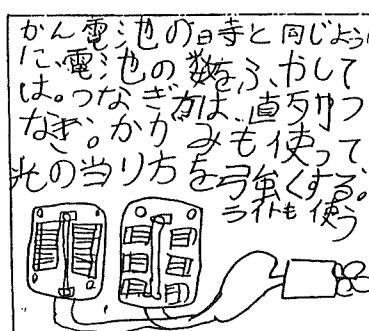 かん電池の時と同じよう
に、電池の数をふやして
は。つなぎ方は、直列つ
なぎ。かがみも使って、
光の当り方を強くする。
ライトも使う